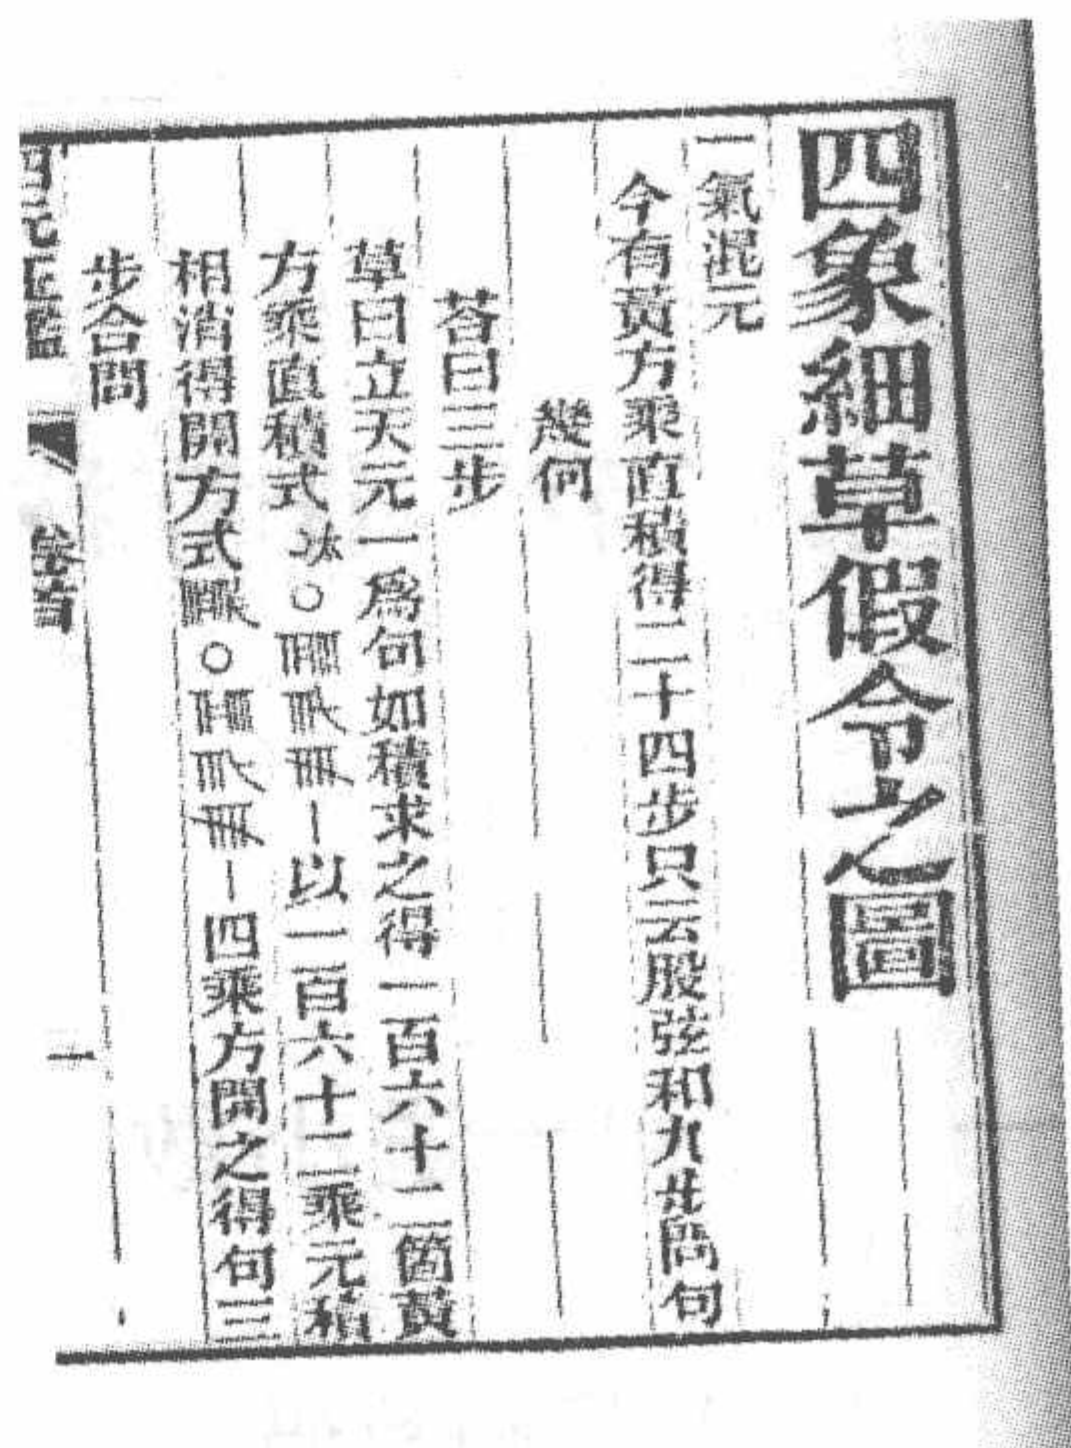 四象細草假令之圖
一氣混元
今有黃方乘直積得二十四步只云股弦和九步問句
幾何
荅曰三步
草曰立天元一爲句如積求之得一百六十二箇黃
方乘直積式〇以一百六十二乘元積
相消得開方式〇四乘方開之得句三
步合問
四元玉鑑 卷首 一